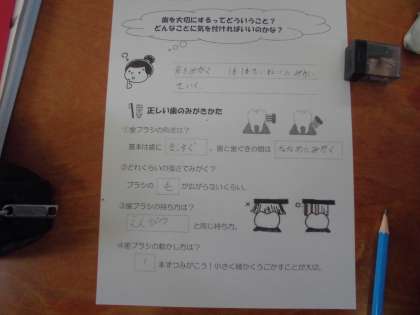 歯を大切にするってどういうこと?
どんなことに気を付ければいいのかな?
正しい歯のみがきかた
①歯ブラシの角度は?
基本は歯に まっすぐ 。歯と歯ぐきの間は ななめにみがく
②どれくらいの強さでみがく?
ブラシの 毛 が広がらないくらい。
③歯ブラシの持ち方は?
えんぴつ と同じ持ち方。
④歯ブラシの動かし方は?
1 本ずつみがこう!小さく細かくうごかすことが大切。